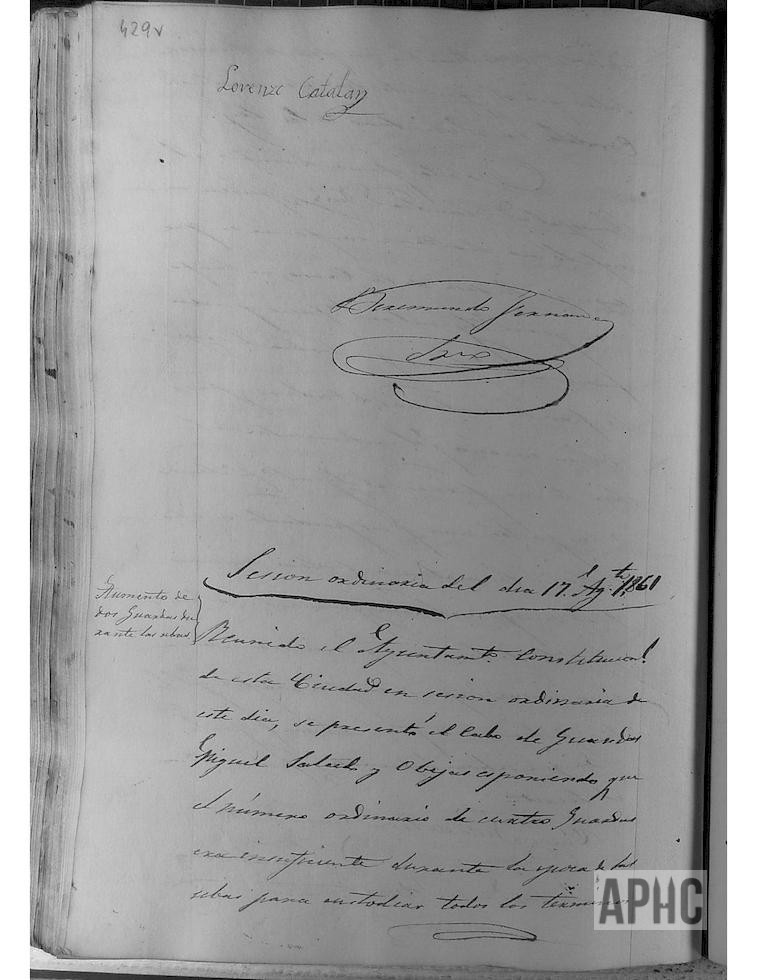 429v
Lorenzo Catalan
Beremundo Fernan
Sesion ordinaria del dia 17 Agto 1861
Aumento de
dos Guardas du
rante las ubas
Reunido el Ayuntamto Constitucional
de esta Ciudad en sesion ordinaria de
este dia, se presentó el Cabo de Guardas
Miguel Salcedo y Obejas esponiendo que
el número ordinario de cuatro Guardas
era insuficiente durante la epoca de las
ubas para custodiar todos los términos
APHC